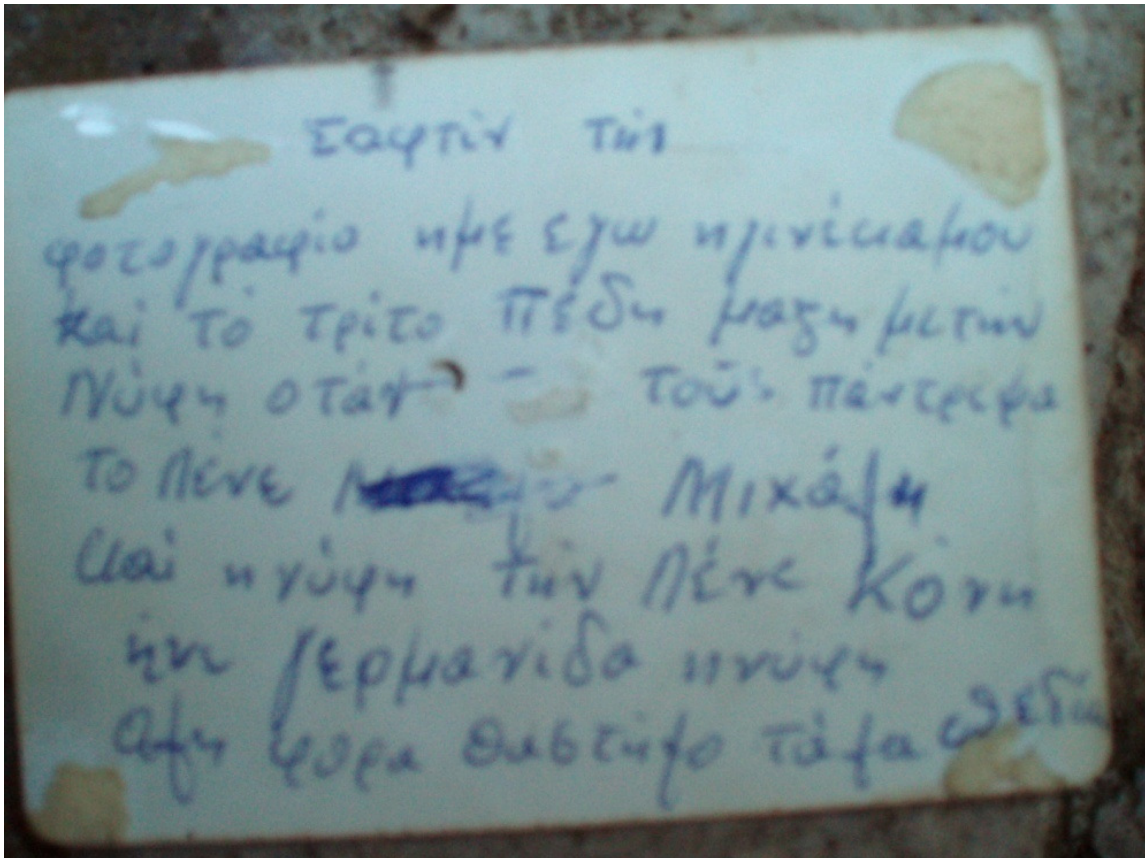 Σαφτίν τήν
φοτογραφίο ημε εγω ηγινέκαμου
και το τρίτο πέδη μαζη μετήν
Νύφη οτάν τούς πάντρεψα
το λένε Μιχάλη
και η νύφη τήν λένε Κόνη
ήνε γερμανίδα ηνύφη
αλη φορα θαστήλο τάλα πεδία